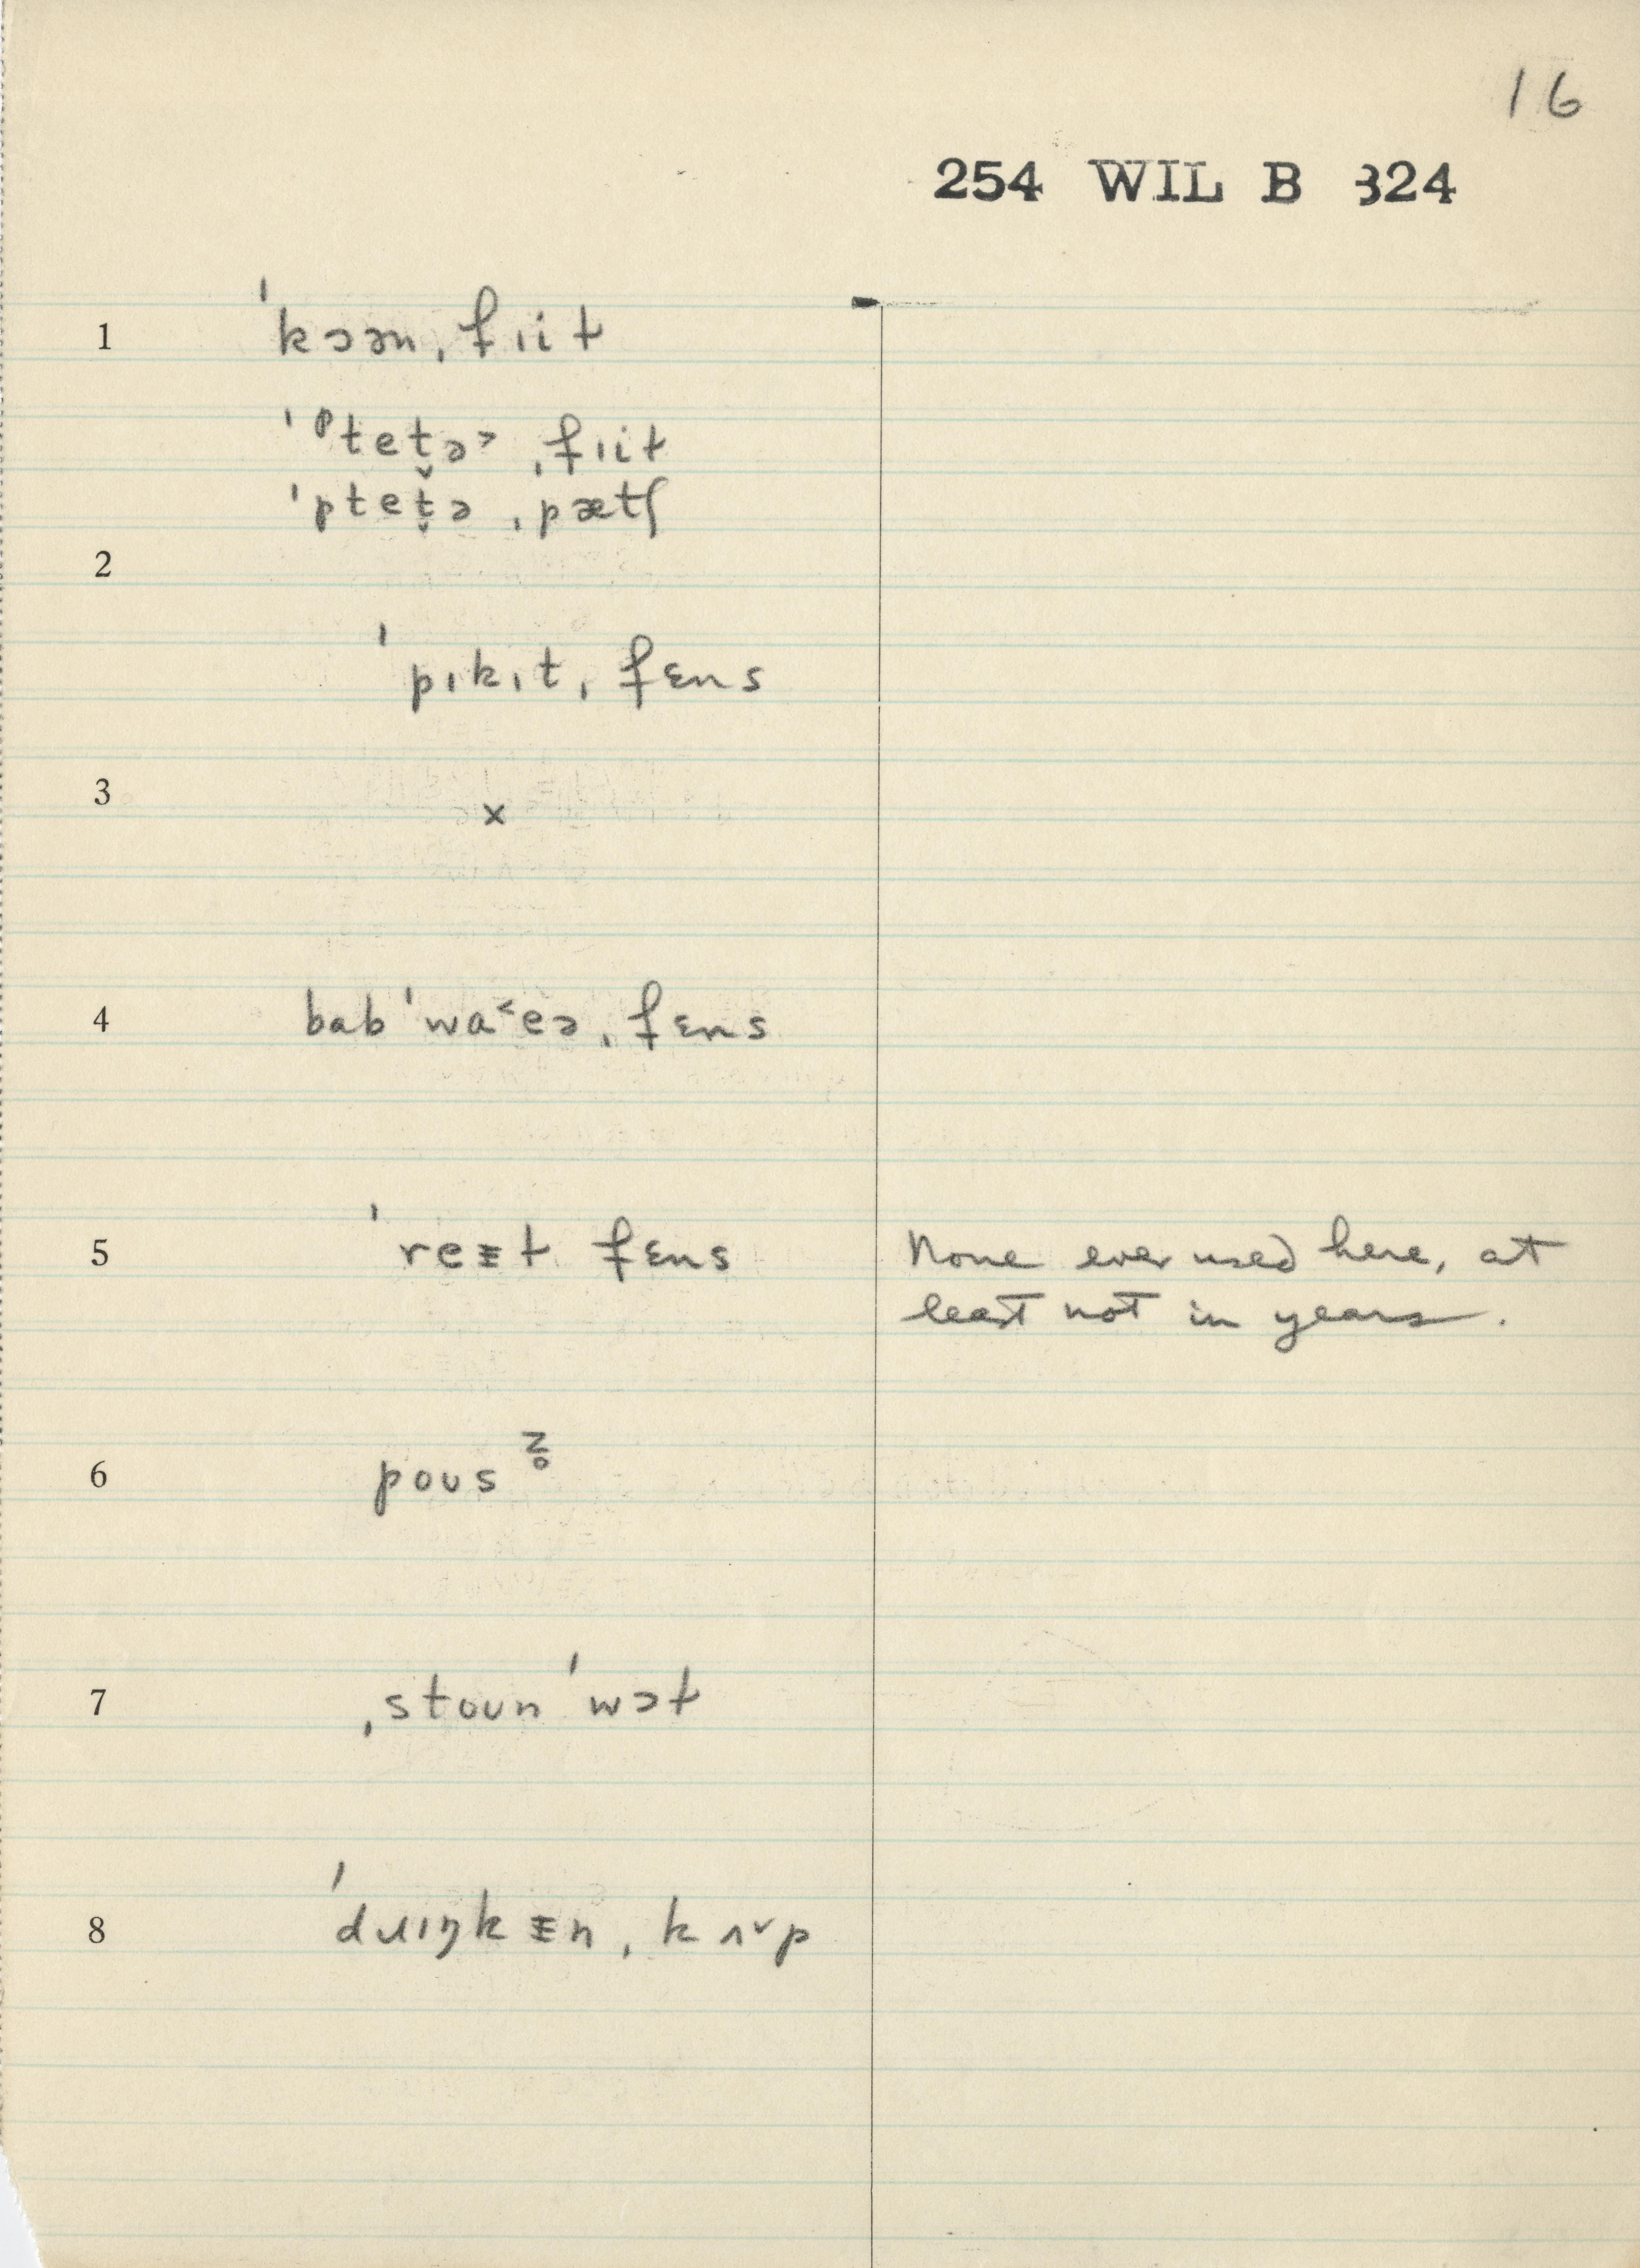 16
254 WIL B 324
1 ˈkɔən ˌfɪiɫ
ˈᵖteṱə˃ ˌfɪiɫ
ˈpteṱə ˌpætʃ
2
ˈpɪkɪt ˌfɛns
3 ×
4 bab ˈwa˂eə ˌfɛns
5 ˈreᵻɫ fɛns None ever used here, at
least not in years.
6 poʊs
7 ˌstoʊn ˈwɔɫ
8 ˈdɹɪŋkᵻn ˌkʌ˅p